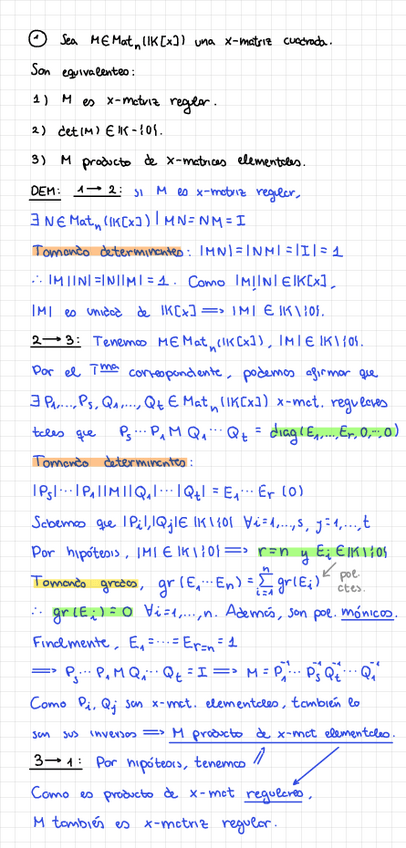 ① Sea M∈Mat_n(IK[x]) una x-matriz cuadrada.
Son equivalentes:
1) M es x-matriz regular.
2) det(M) ∈ IK-{0}.
3) M producto de x-matrices elementales.
DEM: 1→2: si M es x-matriz regular,
∃ N∈Mat_n(IK[x]) | MN = NM = I
Tomando determinantes: |MN| = |NM| = |I| = 1
∴ |M||N| = |N||M| = 1. Como |M|,|N| ∈ IK[x],
|M| es unidad de IK[x] ⟹ |M| ∈ IK\{0}.
2→3: Tenemos M∈Mat_n(IK[x]), |M| ∈ IK\{0}.
Por el Tma correspondiente, podemos afirmar que
∃ P₁,...,Pₛ, Q₁,...,Qₜ ∈ Mat_n(IK[x]) x-mat. regulares
tales que Pₛ···P₁ M Q₁···Qₜ = diag(E₁,...,Eᵣ,0,···,0)
Tomando determinantes:
|Pₛ|···|P₁||M||Q₁|···|Qₜ| = E₁···Eᵣ (0)
Sabemos que |Pᵢ|,|Qⱼ| ∈ IK\{0} ∀i=1,...,s, j=1,...,t
Por hipótesis, |M| ∈ IK\{0} ⟹ r=n y Eᵢ∈IK\{0}
Tomando grados, gr(E₁···Eₙ) = Σⁿᵢ₌₁ gr(Eᵢ) ↙ pol. ctes.
∴ gr(Eᵢ)=0 ∀i=1,...,n. Además, son pol. mónicos.
Finalmente, E₁=···=Eᵣ₌ₙ = 1
⟹ Pₛ···P₁ M Q₁···Qₜ = I ⟹ M = P₁⁻¹···Pₛ⁻¹ Qₜ⁻¹···Q₁⁻¹
Como Pᵢ, Qⱼ son x-mat. elementales, también lo
son sus inversos ⟹ M producto de x-mat elementales.
3→1: Por hipótesis, tenemos //
Como es producto de x-mat regulares,
M también es x-matriz regular.